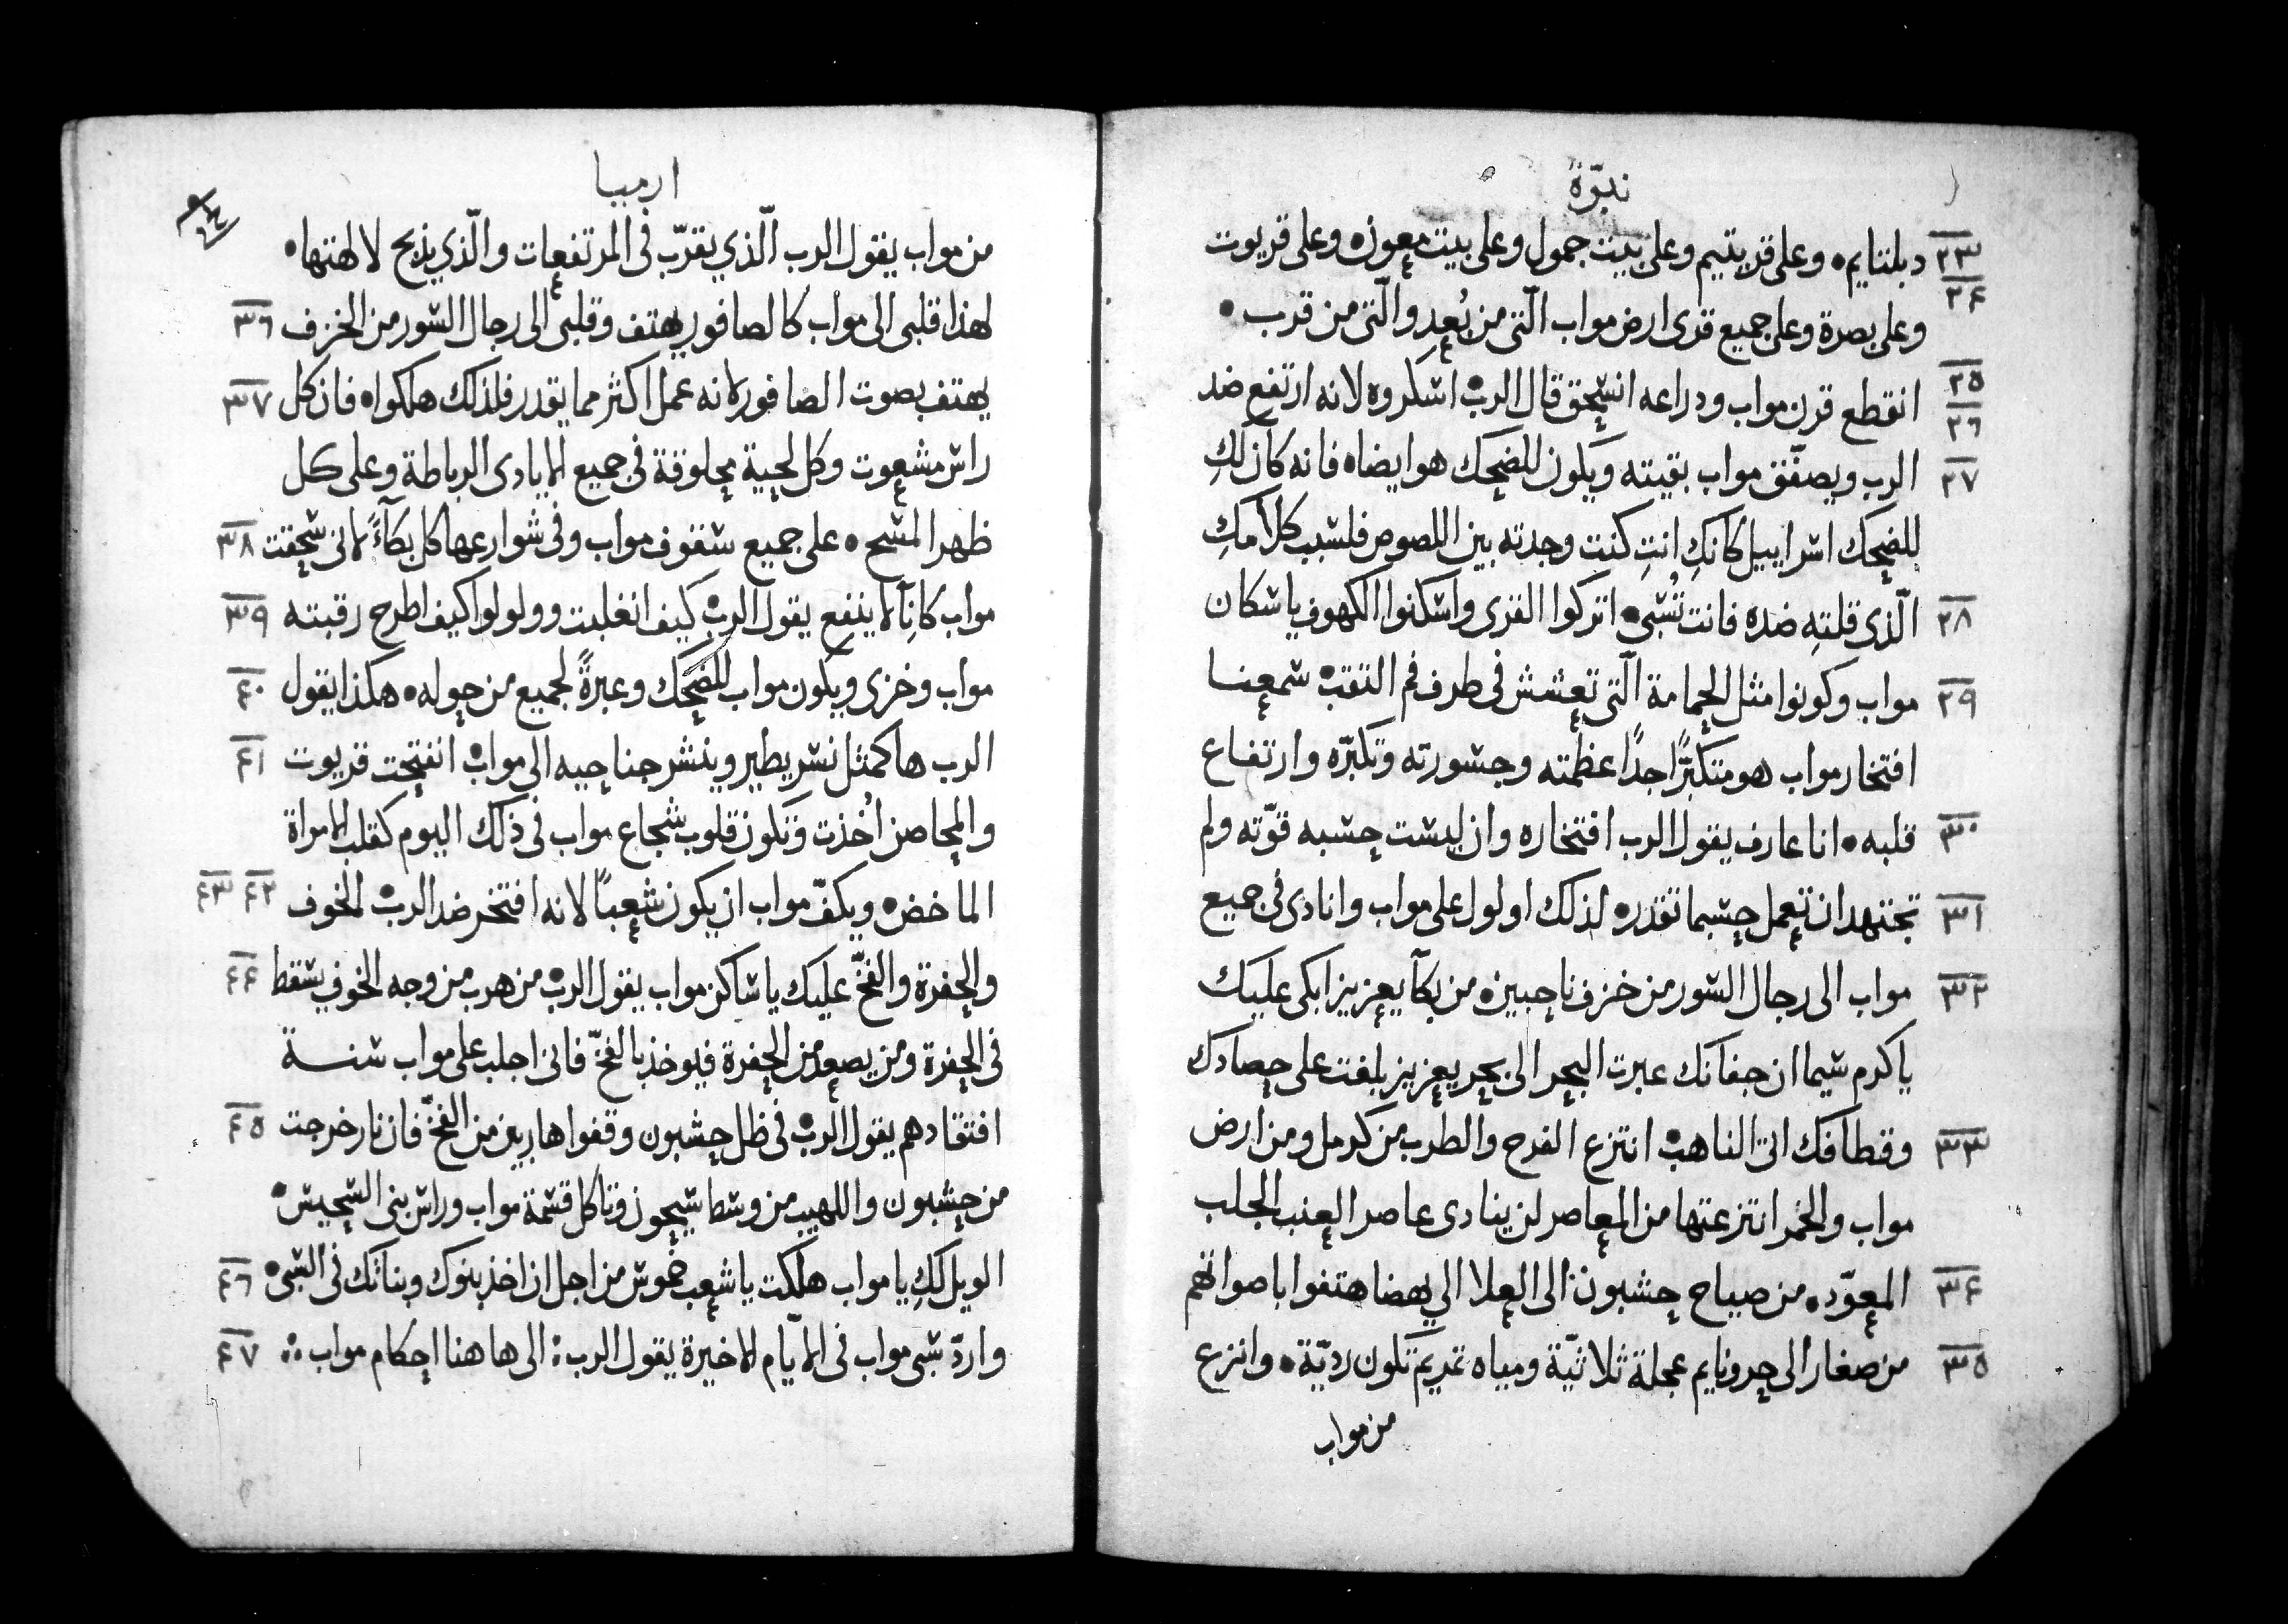 نبوّة
٢٣ دبلتايم٠ وعلى قريتيم وعلى بيت جمول وعلى بيت معون٠ وعلى قريوت
٢٤ وعلى بصرة وعلى جميع قرى ارض مواب الّتى من بُعد والّتى من قرب٠
٢٥ ٢٦ انقطع قرن مواب ودراعه انسحق قال الرب٠ اسكروه لانه ارتفع ضد
٢٧ الرب ويصفّق مواب بقيته ويكون للضحك هو ايضا٠ فانه كان لكِ
للضحك اسراييل كانكِ انتِ كنت وجدته بين اللصوص فلسبب كلامكِ
٢٨ الّذى قلتِه ضده فانت تُسبى٠ اتركوا القرى واسكنوا الكهوف يا سكان
٢٩ مواب وكونوا مثل الحمامة الّتى تعشش فى طرف فم الثقب٠ سمعنا
افتخار مواب هو متكبرًا جدًا عظمته وجسورته وتكبّره وارتفاع
٣٠ قلبه٠ انا عارف يقول الرب افتخاره وان ليست حسبه قوّته ولم
٣١ تجتهد ان تعمل حسبما تقدر٠ لذلك اولول على مواب وانادى فى جميع
٣٢ مواب الى رجال السور من خزف ناحبين٠ من بكآ يعزيز ابكى عليك
يا كرم سيما ان جفانك عبرت البحر الى بحر يعزيز بلغت على حصادك
٣٣ وقطافك اتى الناهب٠ انتزع الفرح والطرب من كرمل ومن ارض
مواب والخمر انتزعتها من المعاصر لن ينادى عاصر العنب الجلب
٣٤ المعوّد٠ من صياح حشبون الى العلا الي يهصا هتفوا باصواتهم
٣٥ من صغار الى حرونايم عجلة ثلاثيّة ومياه نمريم تكون رديّة٠ وانزع
من مواب
ارميا
من مواب يقول الرب الّذي يقرّب فى المرتفعات والّذي يذبح لالهتها٠
لهذا قلبى الى مواب كالصافور يهتف وقلبى الى رجال السور من الخزف ٣٦
يهتف بصوت الصافور لانه عمل اكثر مما يقدر فلذلك هلكوا٠ فان كل ٣٧
راس مشعوت وكل لحية محلوقة فى جميع الايادى الرباطة وعلى كل
ظهر المسح٠ على جميع سقوف مواب وفى شوارعها كل بكآءً لانى سحقت ٣٨
مواب كانآ لا ينفع يقول الرب٠ كيف انغلبت وولولوا كيف اطرح رقبته ٣٩
مواب وخزى ويكون مواب للضحك وعبرةً لجميع من حوله٠ هكذا يقول ٤٠
الرب ها كمثل نسر يطير وينشر جناحيه الى مواب٠ انفتحت قريوت ٤١
والمحاصن اُخذت وتكون قلوب شجاع مواب فى ذلك اليوم كقلب الامراة
الماخض٠ ويكفّ مواب ان يكون شعبًا لانه افتخر ضد الرب٠ الخوف ٤٢ ٤٣
والحفرة والفخّ عليك يا ساكن مواب يقول الرب٠ من هرب من وجه الخوف يسقط ٤٤
فى الحفرة ومن يصعد من الحفرة فيوخذ بالفخّ فانى اجلب على مواب سنة
افتقادهم يقول الرب٠ فى ظل حشبون وقفوا هاربين من الفخّ فان نار خرجت ٤٥
من حشبون واللهيب من وسط سيحون وتاكل قسمة مواب وراس بنى السحيس٠
الويل لكِ يا مواب هلكت يا شعب خموش من اجل ان اخذ بنوك وبناتك فى السبى٠ ٤٦
واردّ سبى مواب فى الايّام الاخيرة يقول الرب: الى هاهنا احكام مواب ٤٧